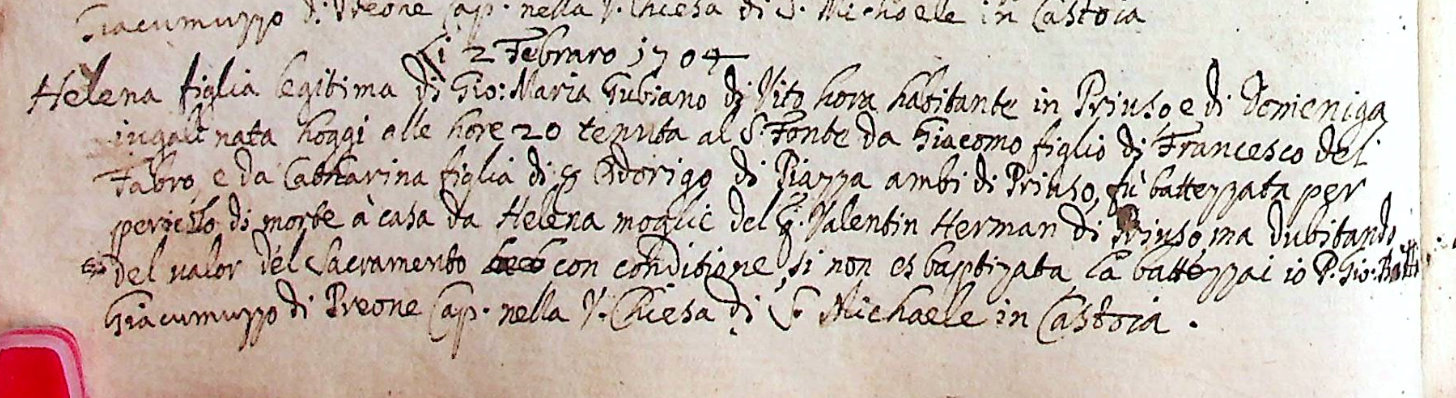 Giacumuzzo di Preone Cap. nella V. Chiesa di S. Michaele in Castoia
Li 2 Febraro 1704
Helena figlia legitima di Gio: Maria Gubiano di Vito hora habitante in Priuso, e di Domeniga
iugali nata hoggi alle hore 20 tenuta al S. Fonte da Giacomo figlio di Francesco del
Fabro, e da Catharina figlia di Odorigo di Piazza ambi di Priuso, fù battezzata per
pericolo di morte à casa da Helena moglie del q. Valentin Herman di Priuso, ma dubitando
del valor del Sacramento con conditione, si non es baptizata la battezzai io P. Gio: Batta
Giacumuzzo di Preone Cap. nella V. Chiesa di S. Michaele in Castoia.